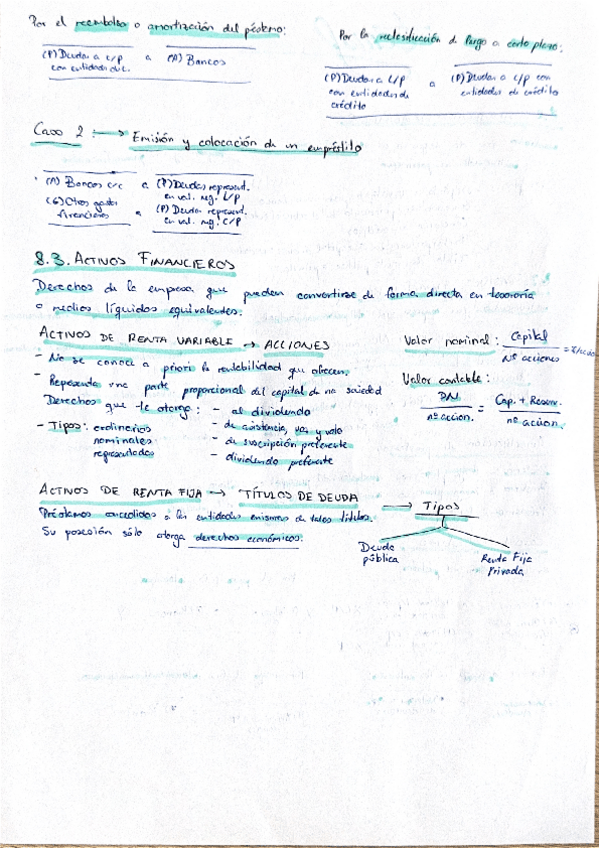 Por el reembolso o amortización del préstamo:
(P) Deudas a c/p a (A) Bancos
con entidades de c.
Por la reclasificación de largo a corto plazo:
(P) Deudas a L/P a (P) Deudas a c/p con
con entidades de entidades de crédito
crédito
Caso 2 → Emisión y colocación de un empréstito
(A) Bancos c/c a (P) Deudas represent.
en val. neg. L/P
(G) Otros gastos a (P) Deudas represent.
financieros en val. neg. C/P
8.3. ACTIVOS FINANCIEROS
Derechos de la empresa que pueden convertirse de forma directa en tesorería
o medios líquidos equivalentes.
ACTIVOS DE RENTA VARIABLE → ACCIONES
- No se conoce a priori la rentabilidad que ofrecen.
- Representa una parte proporcional del capital de una sociedad
Derechos que te otorga: - al dividendo
- de asistencia, voz y voto
- de suscripción preferente
- dividendo preferente
- Tipos: ordinarias
nominales
Valor nominal: Capital
Nº acciones
Valor contable:
PN = Cap. + Reserv.
nº accion. nº accion.
ACTIVOS DE RENTA FIJA → TÍTULOS DE DEUDA → Tipos
Préstamos concedidos a las entidades emisoras de tales títulos.
Su posesión sólo otorga derechos económicos.
Deuda
pública
Renta Fija
Privada